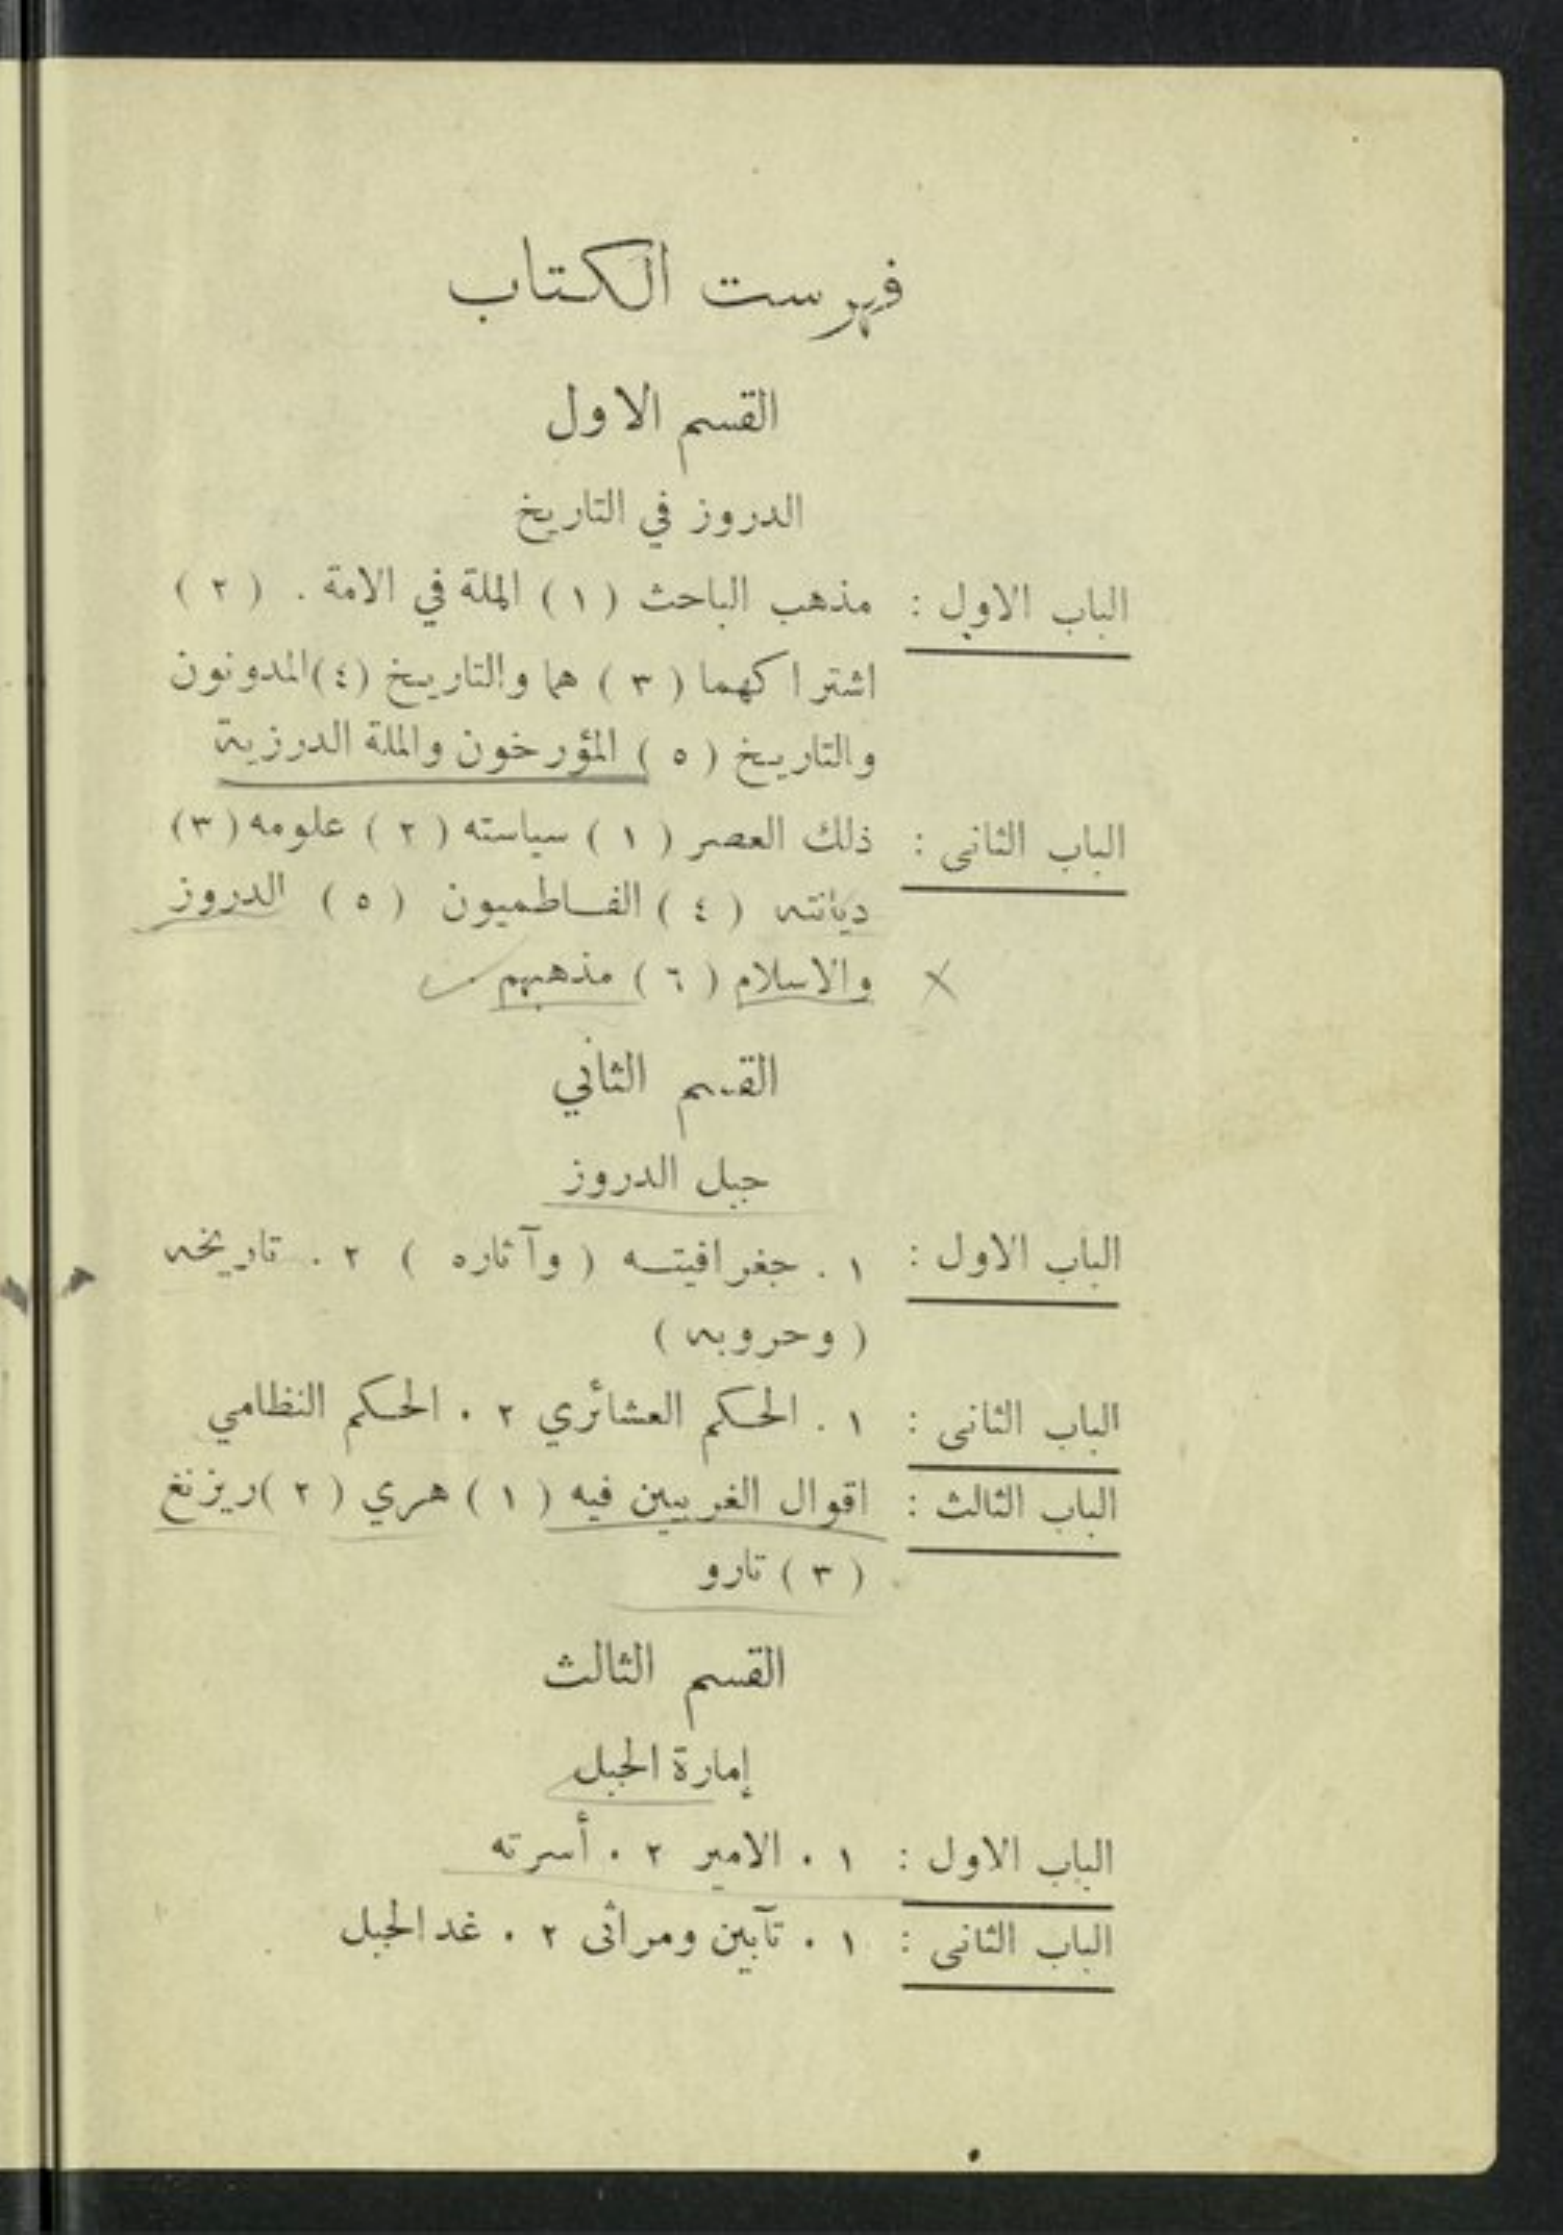 فهرست الكتاب
القسم الاول
الدروز في التاريخ
الباب الاول : مذهب الباحث ( ١ ) الملة في الامة . ( ٢ )
اشتراكهما ( ٣ ) هما والتاريخ ( ٤ ) المدونون
والتاريخ ( ٥ ) المؤرخون والملة الدرزية
الباب الثانى : ذلك العصر ( ١ ) سياسته ( ٢ ) علومه ( ٣ )
ديانته ( ٤ ) الفاطميون ( ٥ ) الدروز
والاسلام ( ٦ ) مذهبهم .
القسم الثاني
جبل الدروز
الباب الاول : ١ . جغرافيته ( وآثاره ) ٢ . تاريخه
( وحروبه )
الباب الثانى : ١ . الحكم العشائري ٢ . الحكم النظامي
الباب الثالث : اقوال الغربيين فيه ( ١ ) هري ( ٢ ) ريزنغ
( ٣ ) تارو
القسم الثالث
إمارة الجبل
الباب الاول : ١ . الامير ٢ . أسرته
الباب الثانى : ١ . تآبين ومراثى ٢ . غد الجبل